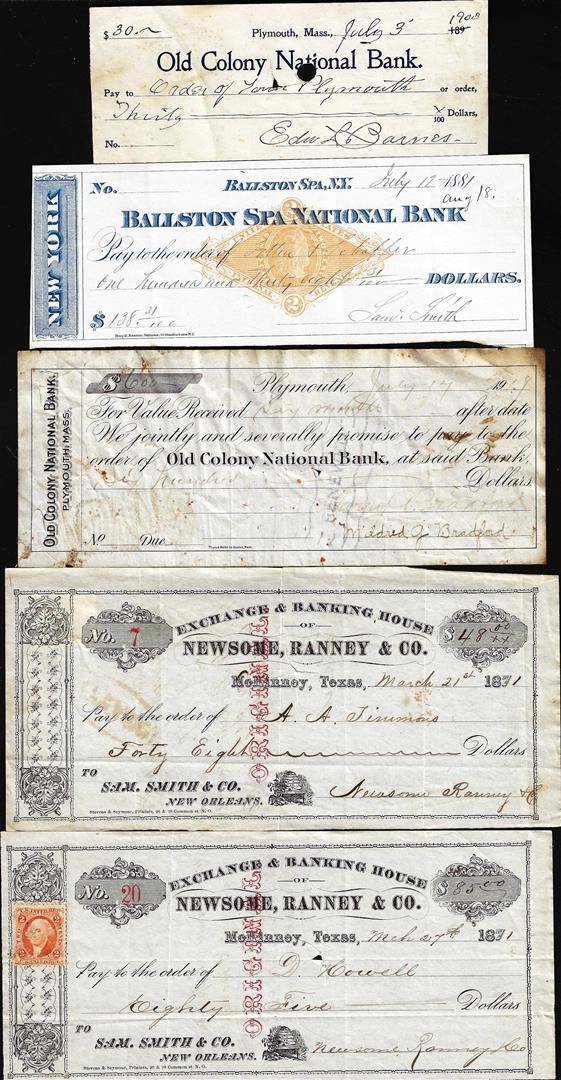 1900
$ 30.~ Plymouth, Mass., July 3 189
Old Colony National Bank.
Pay to Order of Town Plymouth or order,
Thirty x/100 Dollars,
No. Edw L Barnes.
NEW YORK
No. BALLSTON SPA, N.Y. July 12 1881
Aug 18.
BALLSTON SPA NATIONAL BANK
Pay to the order of
One hundred and thirty eight 31/100 DOLLARS.
2
2
$ 138.31/100 Saml. Smith
OLD COLONY NATIONAL BANK,
PLYMOUTH, MASS.
$ 600 Plymouth, July 17 19
For Value Received Six months after date
We jointly and severally promise to pay to the
order of Old Colony National Bank, at said Bank,
Six hundred Dollars
No Due Mildred J Bradford
EXCHANGE & BANKING HOUSE
No. 7 OF $ 48 00/xx
NEWSOME, RANNEY & CO.
McKinney, Texas, March 21st 1871
Pay to the order of A. A. Timmons
Forty Eight Dollars
ORIGINAL
TO
SAM. SMITH & CO.
NEW ORLEANS. Newsome Ranney & C
Stevens & Seymour, Printers, 26 & 28 Common st. N. O.
EXCHANGE & BANKING HOUSE
No. 20 OF $ 85 00
NEWSOME, RANNEY & CO.
McKinney, Texas, Mch 27th 1871
Pay to the order of D. Howell
Eighty Five Dollars
ORIGINAL
TO
SAM. SMITH & CO.
NEW ORLEANS. Newsome Ranney & Co
Stevens & Seymour, Printers, 26 & 28 Common st. N. O.